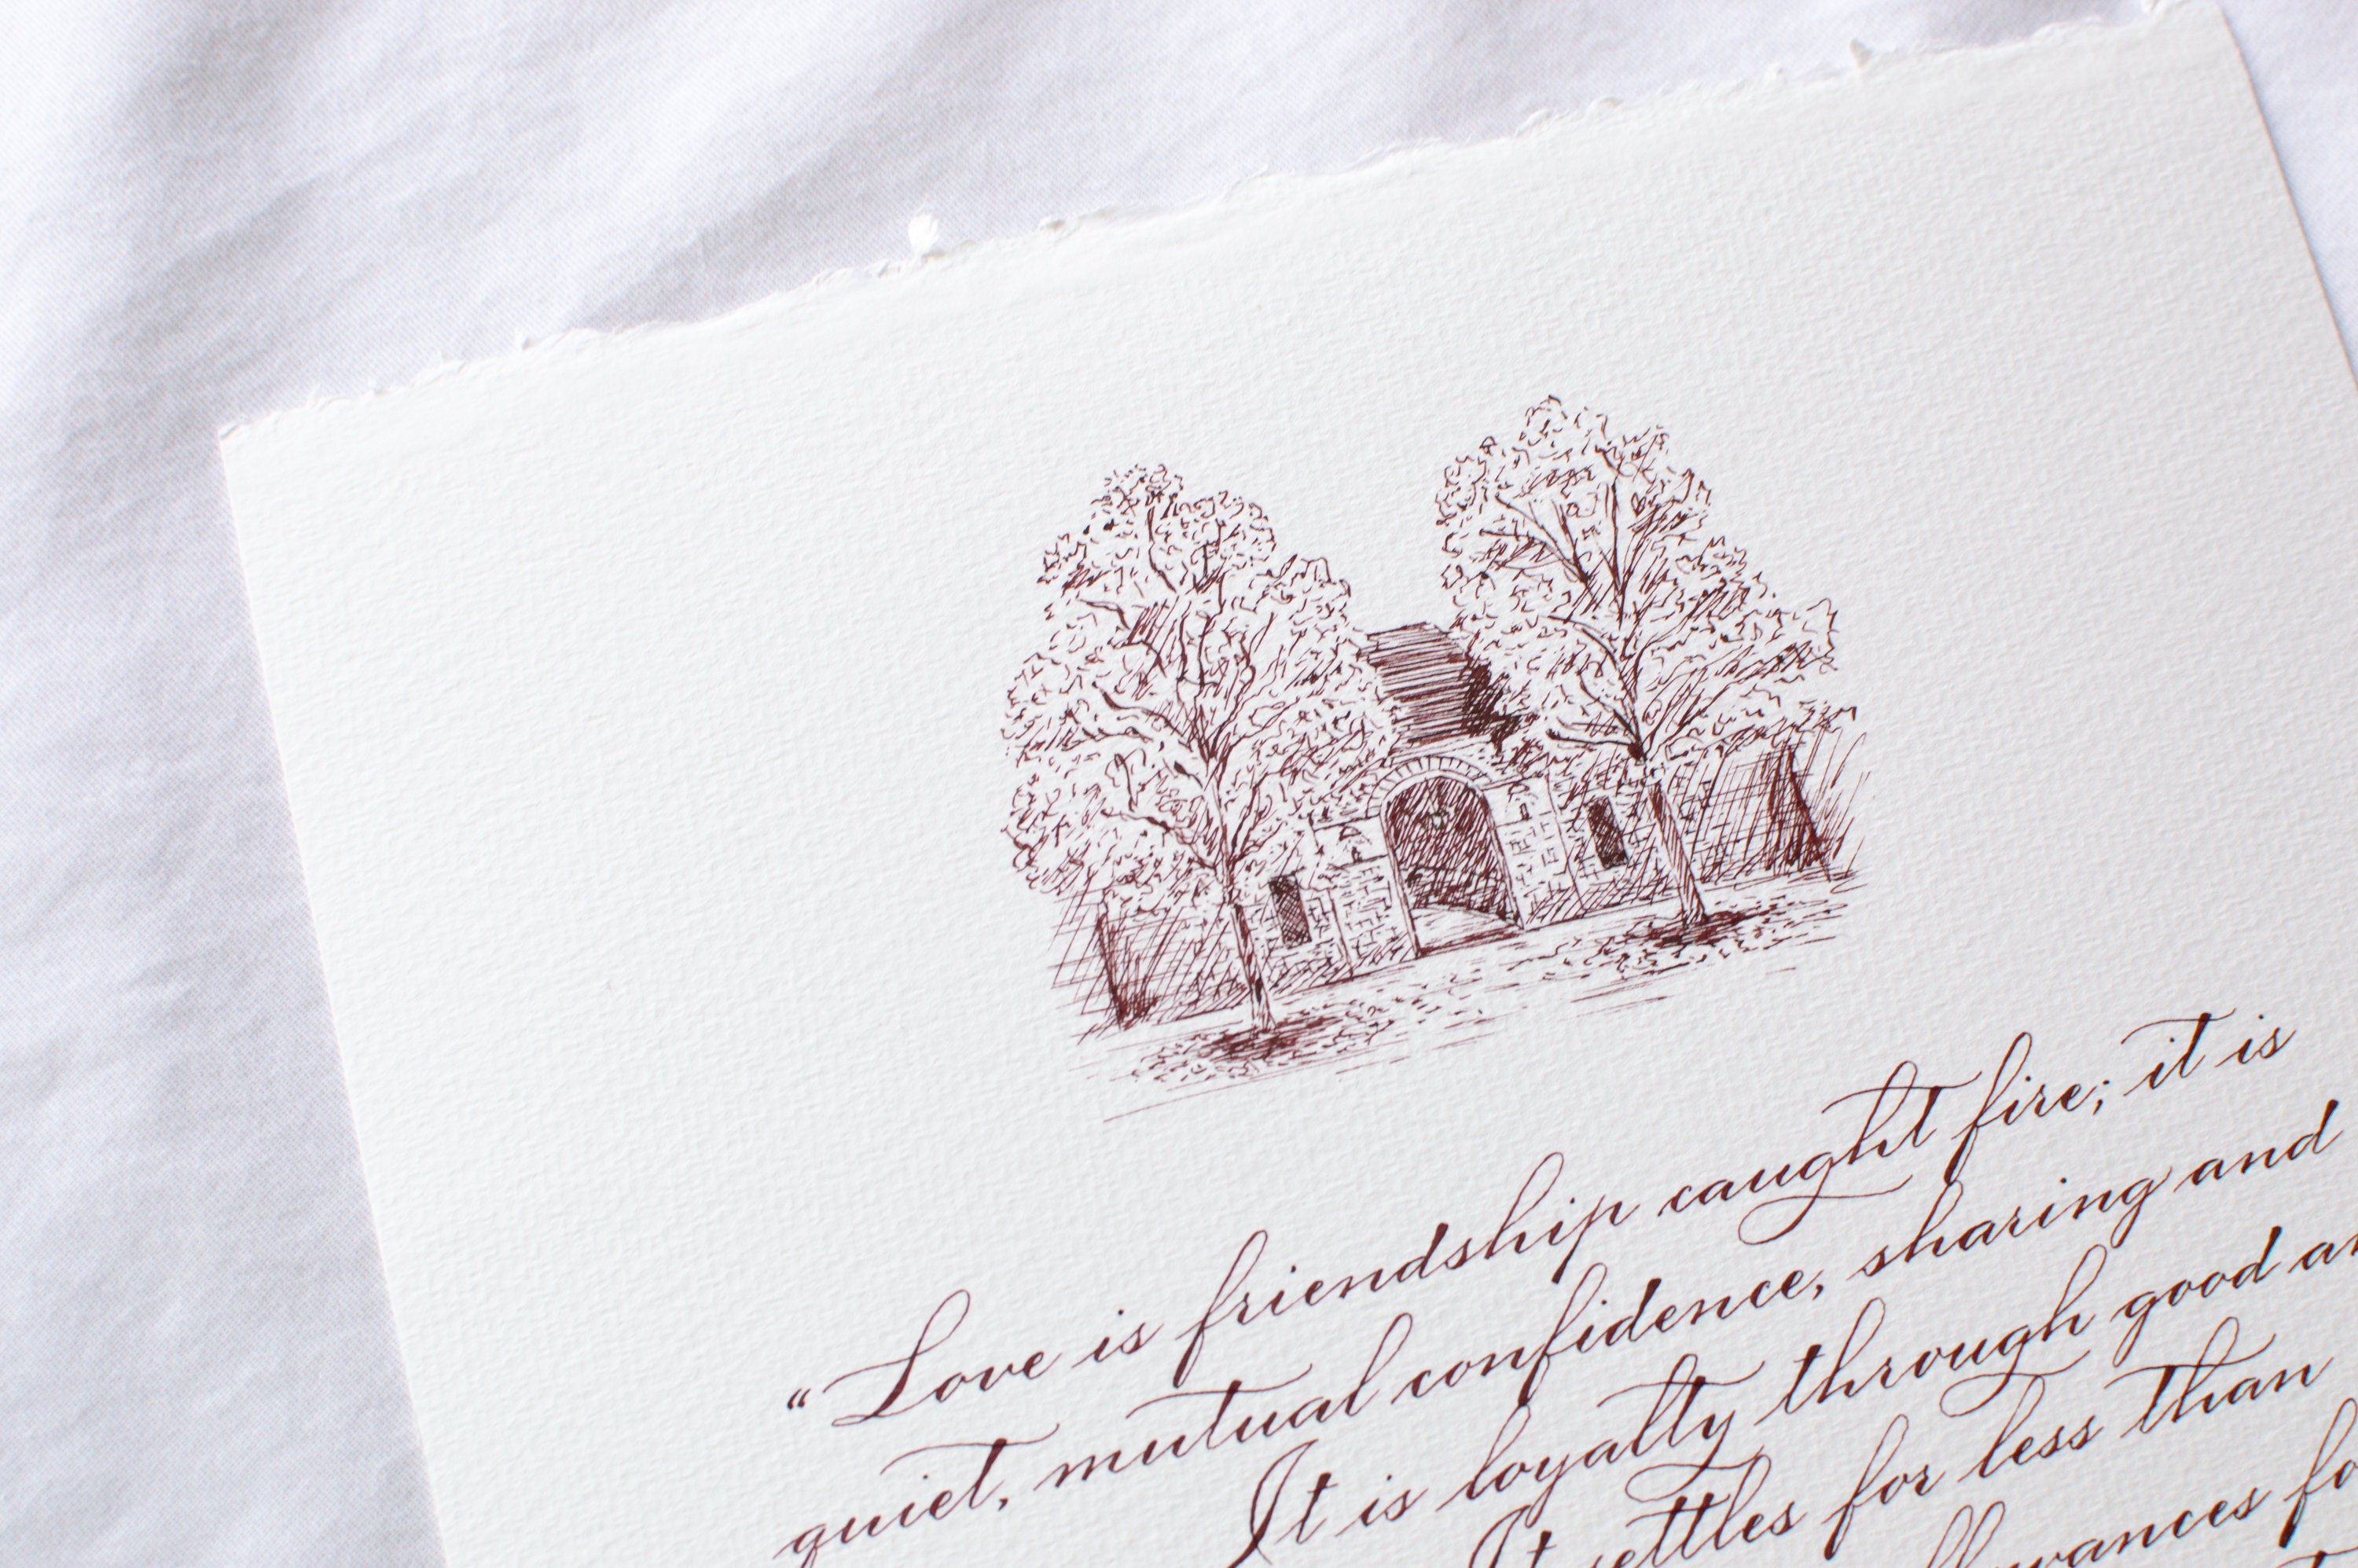 “Love is friendship caught fire; it is
quiet, mutual confidence, sharing and
It is loyalty through good
It settles for less than